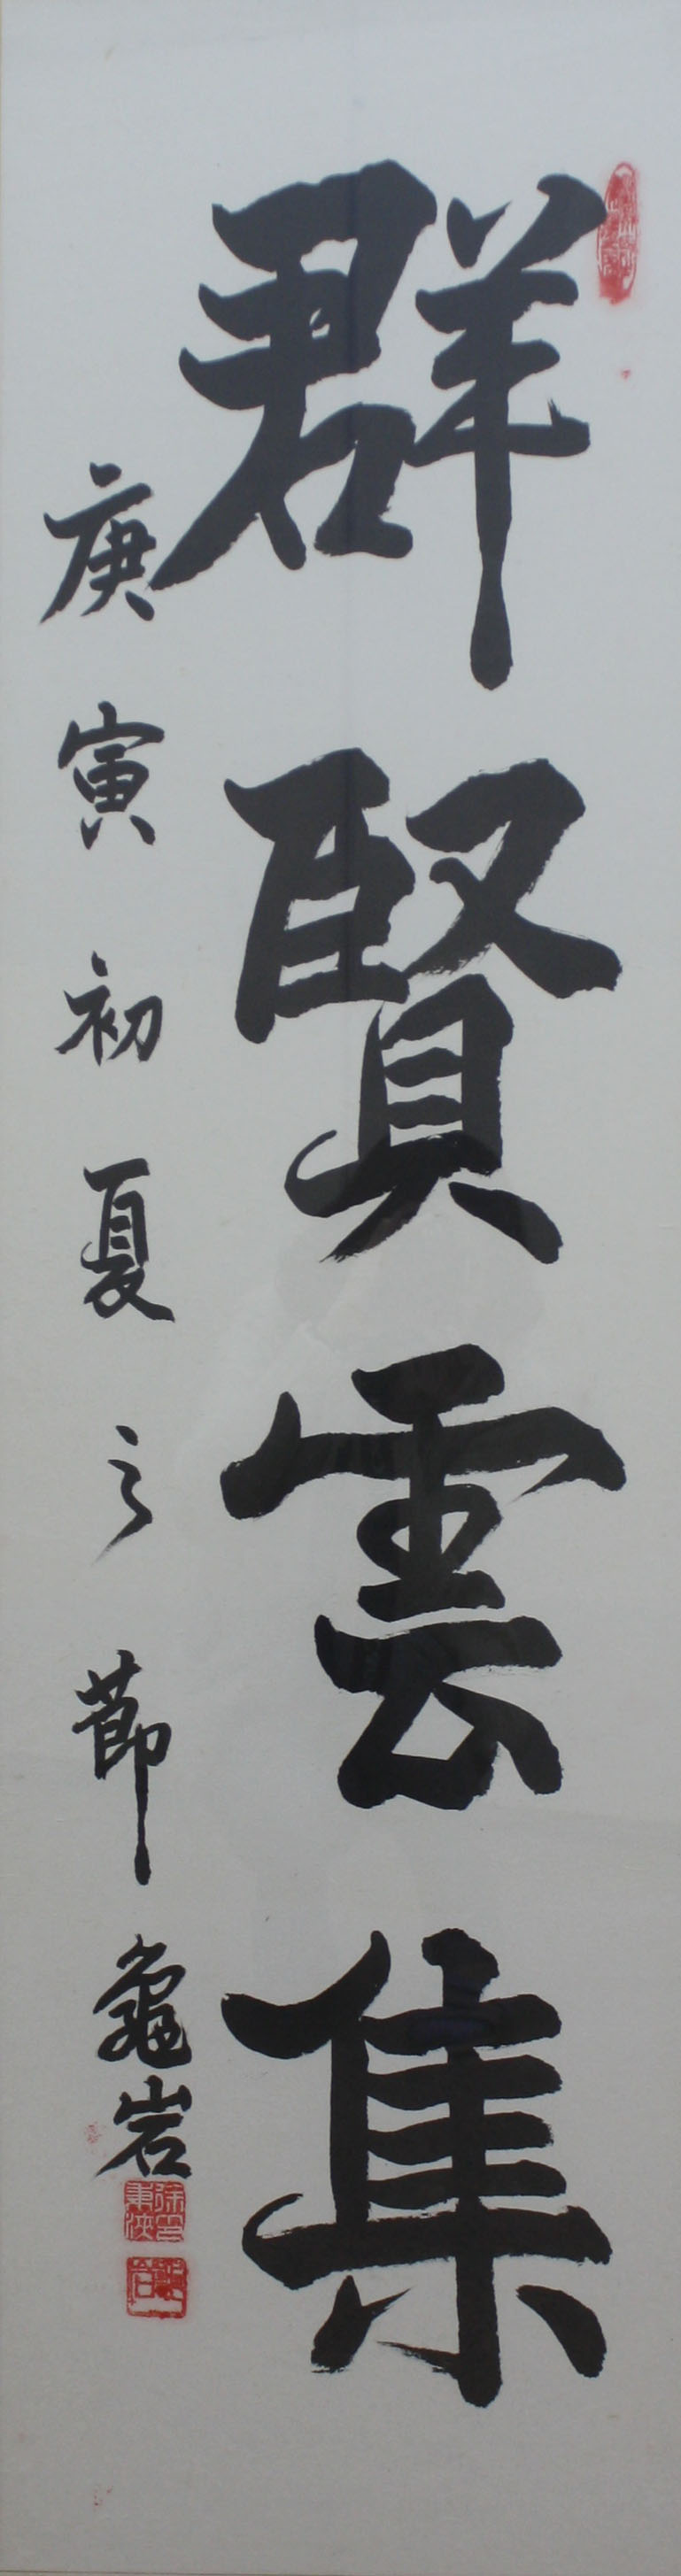 群賢雲集
庚寅初夏之節 龜岩